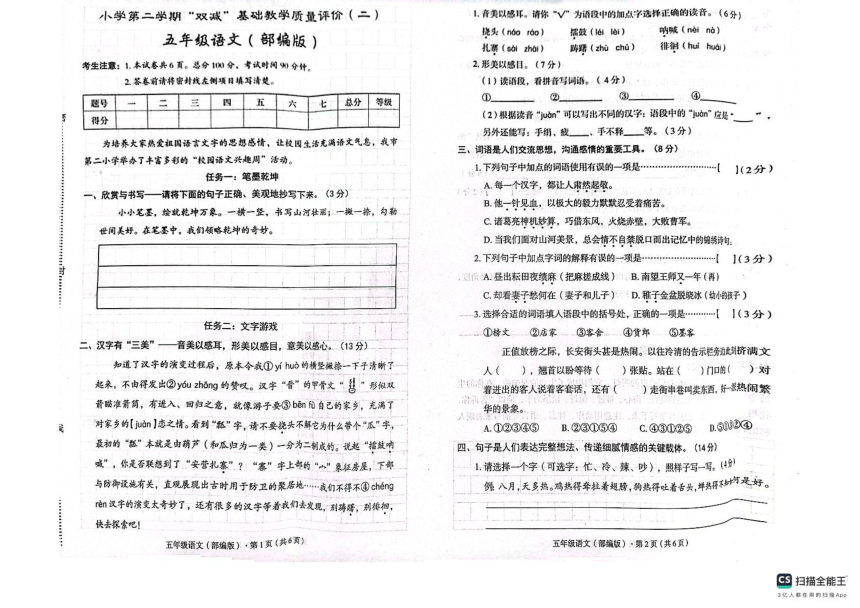 小学第二学期“双减”基础教学质量评价(二)
五年级语文(部编版)
考生注意:1.本试卷共6页。总分100分,考试时间90分钟。
2.答卷前请将密封线左侧项目填写清楚。
题号 一 二 三 四 五 六 七 总分 等级
得分
为培养大家热爱祖国语言文字的思想感情,让校园生活充满语文气息,我市
第二小学举办了丰富多彩的“校园语文兴趣周”活动。
任务一:笔墨乾坤
一、欣赏与书写——请将下面的句子正确、美观地抄写下来。(3分)
小小笔墨,绘就乾坤万象。一横一竖,书写山河壮丽;一撇一捺,勾勒
世间美好。在笔墨中,我们领略乾坤的奇妙。
任务二:文字游戏
二、汉字有“三美”——音美以感耳,形美以感目,意美以感心。(13分)
知道了汉字的演变过程后,原本令我①yí huò的横竖撇捺一下子清晰了
起来,不由得发出②yóu zhōng的赞叹。汉字“晋”的甲骨文“ ”形似双
箭瞄准箭筒,有进入、回归之意,就像游子要③bēn fù自己的家乡,充满了
对家乡的【juàn】恋之情。看到“瓢”字,请不要挠头不解它为什么带个“瓜”字,
最初的“瓢”本就是由葫芦(和瓜归为一类)一分为二制成的。说起“擂鼓呐
喊”,你是否联想到了“安营扎寨”?“寨”字上部的“宀”象征房屋,下部
与防御设施有关,直观展现出古时用于防卫的聚居地……我们不得不④chéng
rèn汉字的演变太奇妙了,还有很多的汉字等着我们去发现,别踌躇,别徘徊,
快去探索吧!
五年级语文(部编版)·第1页(共6页)
1.音美以感耳。请你“√”为语段中的加点字选择正确的读音。(6分)
挠头(náo ráo) 擂鼓(léi lèi) 呐喊(nèi nà)
扎寨(sài zhài) 踌躇(zhù chú) 徘徊(huí huái)
2.形美以感目。(7分)
(1)读语段,看拼音写词语。(4分)
① ② ③ ④
(2)根据读音“juàn”可以写出不同的汉字:语段中的“juàn”应是“ ”,
另外还能写:手绢、疲 、手不释 等。(3分)
三、词语是人们交流思想,沟通感情的重要工具。(8分)
1.下列句子中加点的词语使用有误的一项是……【 】(2分)
A.每一个汉字,都让人肃然起敬。
B.他一针见血,以极大的毅力默默忍受着痛苦。
C.诸葛亮神机妙算,巧借东风,火烧赤壁,大败曹军。
D.当我们面对山河美景,总会情不自禁脱口而出记忆中的锦绣诗句。
2.下列句子中加点字词的解释有误的一项是……【 】(3分)
A.昼出耘田夜绩麻(把麻搓成线) B.南望王师又一年(再)
C.却看妻子愁何在(妻子和儿子) D.稚子金盆脱晓冰(幼小的孩子)
3.选择合适的词语填入语段中的括号处,正确的一项是……【 】(3分)
①榜文 ②店家 ③客舍 ④货郎 ⑤墨客
正值放榜之际,长安街头甚是热闹。以往冷清的告示栏旁边此刻挤满文
人( ),翘首以盼等待( )张贴。站在( )门口的( )对
着进出的客人说着客套话,还有( )走街串巷叫卖东西,好一派热闹繁
华的景象。
A.①②③④⑤ B.②③①⑤④ C.④③①②⑤ D.⑤①③②④
四、句子是人们表达完整想法、传递细腻情感的关键载体。(14分)
1.请选择一个字(可选字:忙、冷、辣、吵),照样子写一写。(4分)
例:八月,天多热。鸡热得耷拉着翅膀,狗热得吐着舌头,蝉热得不知如何是好。
五年级语文(部编版)·第2页(共6页)
CS 扫描全能王
3亿人都在用的扫描App